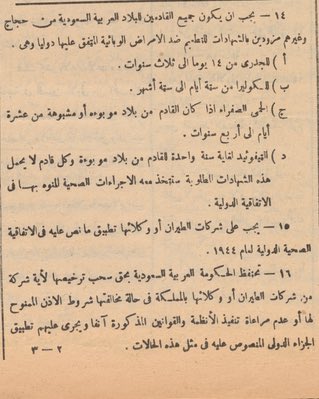 ١٤ – يجب ان يكون جميع القادمين للبلاد العربية السعودية من حجاج
وغيرهم مزودين بالشهادات للتطعيم ضد الامراض الوبائية المتفق عليها دوليا وهى .
أ ) للجدرى من ١٤ يوما الى ثلاث سنوات .
ب ) للكوليرا من ستة أيام الى ستة أشهر .
ج ) الحمى الصفراء اذا كان القادم من بلاد موبوءه أو مشبوهة من عشرة
أيام الى أربع سنوات .
د ) التيفوئيد لغاية سنة واحدة للقادم من بلاد موبوءة وكل قادم لا يحمل
هذه الشهادات المطلوبة ستتخذ معه الاجراءات الصحية المنوه بها فى
الاتفاقية الدولية .
١٥ – يجب على شركات الطيران أو وكلائها تطبيق ما نص عليه فى الاتفاقية
الصحية الدولية لعام ١٩٤٤ .
١٦ – تحتفظ الحكومة العربية السعودية بحق سحب ترخيصها لأية شركة
من شركات الطيران أو وكلائها بالمملكة فى حالة مخالفتها شروط الاذن الممنوح
لها أو عدم مراعاة تنفيذ الأنظمة والقوانين المذكورة آنفا ويجرى عليهم تطبيق
الجزاء الدولى المنصوص عليه فى مثل هذه الحالات .
٢ – ٣